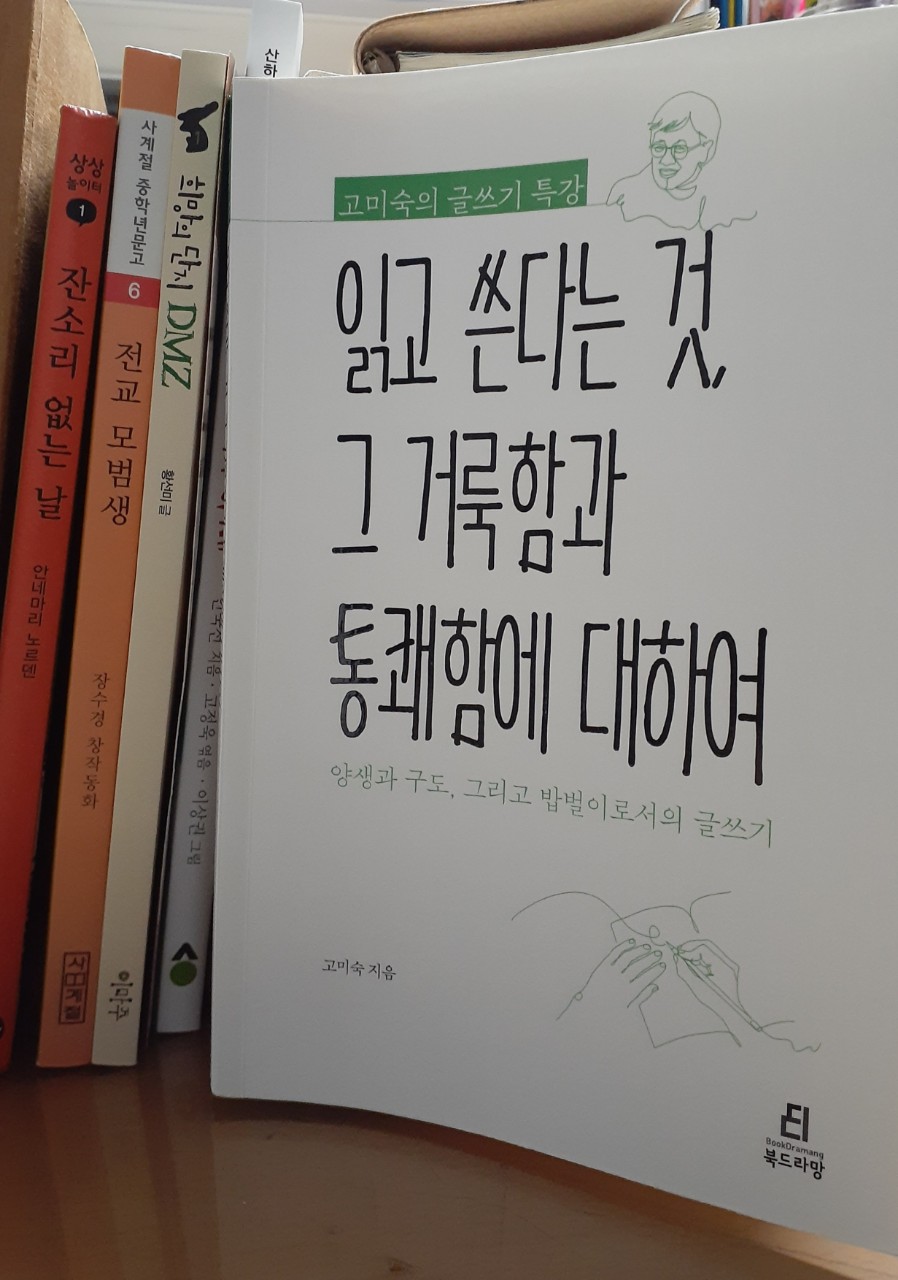 상상
놀이터
1
잔소리 없는 날
안네마리 노르덴
사계절 중학년문고
6
전교 모범생
장수경 창작동화
사계절
희망의 단지 DMZ
황선미 글
이마주
지음 · 고정욱 엮음 · 이상권 그림
산하
고미숙의 글쓰기 특강
읽고 쓴다는 것,
그 거룩함과
통쾌함에 대하여
양생과 구도, 그리고 밥벌이로서의 글쓰기
고미숙 지음
BookDramang
북드라망